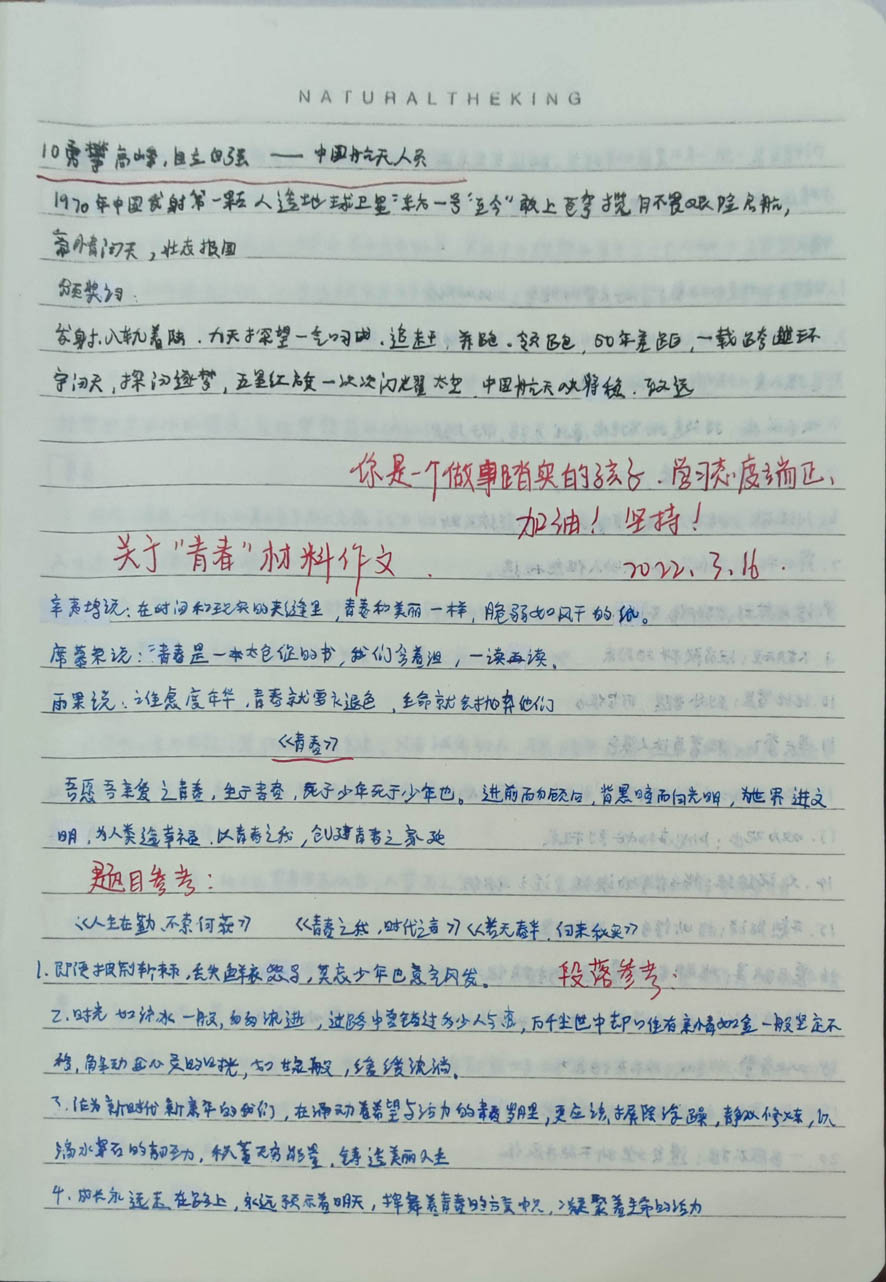 NATURALTHEKING
10 勇攀高峰,自立自强 —— 中国航天人员
1970年中国发射第一颗人造地球卫星"东方一号"至今"敢上苍穹揽月不畏艰险启航,
豪情问天,壮志报国
颁奖词:
发射、入轨着陆.九天探望一气呵成.追赶,并跑.领跑,50年差距,一载跨越环
宇问天,探问逐梦,五星红旗一次次闪耀太空.中国航天必将稳.致远
你是一个做事踏实的孩子.学习态度端正、
加油!坚持!
关于"青春"材料作文.
2022.3.16.
辛夷坞说:在时间和现实的夹缝里,青春和美丽一样,脆弱如风干的纸。
席慕蓉说:"青春是一本太仓促的书,我们含着泪,一读再读.
雨果说:谁虚度年华,青春就要褪色,生命就会抛弃他们
《青春》
吾愿吾亲爱之青春,生于青春,死于少年死于少年也。进前而勿顾后,背黑暗而向光明,为世界进文
明,为人类造幸福.以青春之我,创建青春之家
题目参考:
《人生在勤,不索何获》 《青春之我,时代之音》《人若无春耕,何来秋实》
1.即便披荆斩棘,丢失鲜衣怒马,莫忘少年也意气风发。
段落参考.
2.时光如流水一般,匆匆流逝,过路中曾错过多少人与恋,万千尘世中却只住有亲情如金一般坚定不
移,触动心灵的,缓缓流淌。
3.作为新时代新青年的我们,在涌动着希望与活力的青春岁月里,更应该摒除浮躁,静默修来,以
滴水穿石的韧劲力,积蓄无穷能量,铸造美丽人生
4.成长永远走在路上,永远预示着明天,挥舞着青春的方度中,凝聚着生命的活力